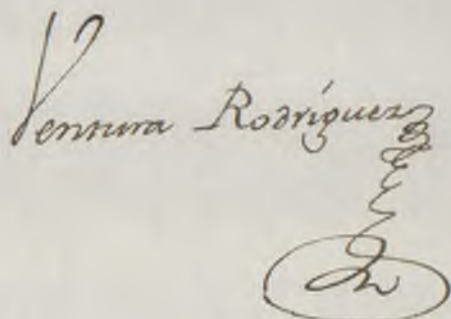 Ventura Rodríguez